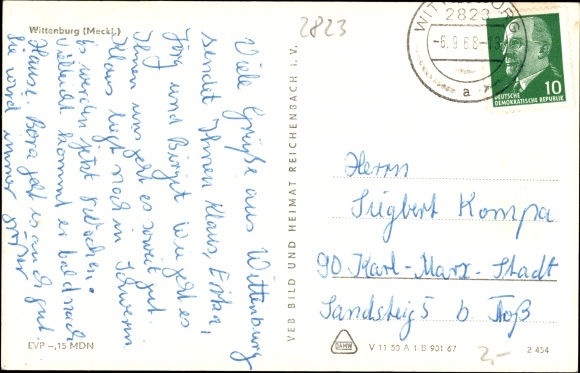 Wittenburg (Meckl.)
2823
WITTENBURG
2823
-6.9.68-13
a
10
DEUTSCHE
DEMOKRATISCHE REPUBLIK
Viele Grüße aus Wittenburg
sendet Ihnen Klaus, Erika,
Jörg und Birgit. Wie geht es
Ihnen uns geht es soweit gut.
Klaus liegt noch in Schwerin
es werden jetzt 8 Wochen.
Vielleicht kommt er bald nach
Hause. Bora geht es auch gut.
Sie wird immer größer
EVP -,15 MDN
VEB BILD UND HEIMAT REICHENBACH I. V.
Herrn
Siegbert Kompa
90 Karl-Marx-Stadt
Sandsteig 5 b Troß
DAHW
V 11 50 A 1 B 901 67
2,-
2 454